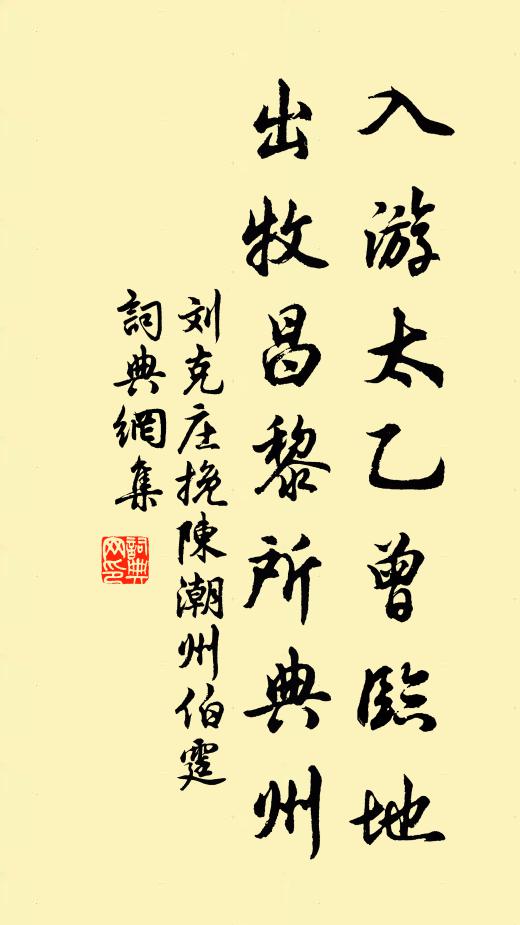 入游太乙曾臨地
出牧昌黎所典州
刘克庄挽陳潮州伯霆
詞典網集
詞典網印